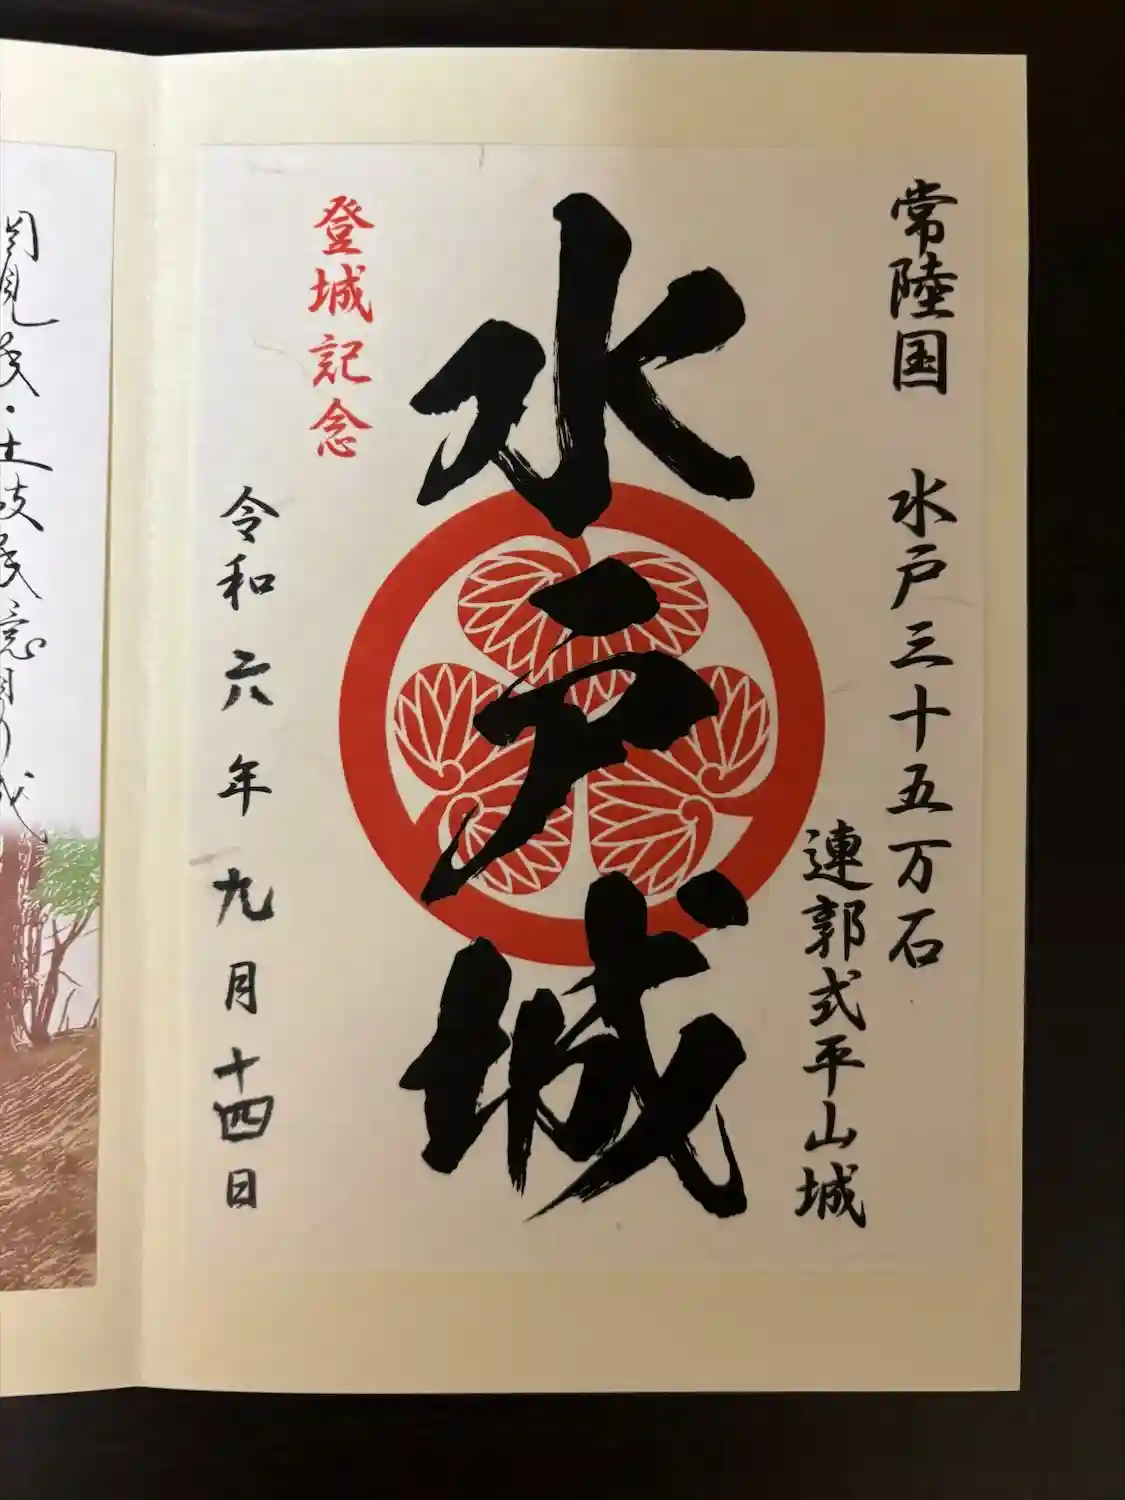 常陸国 水戸三十五万石
連郭式平山城
水戸城
登城記念
令和六年九月十四日